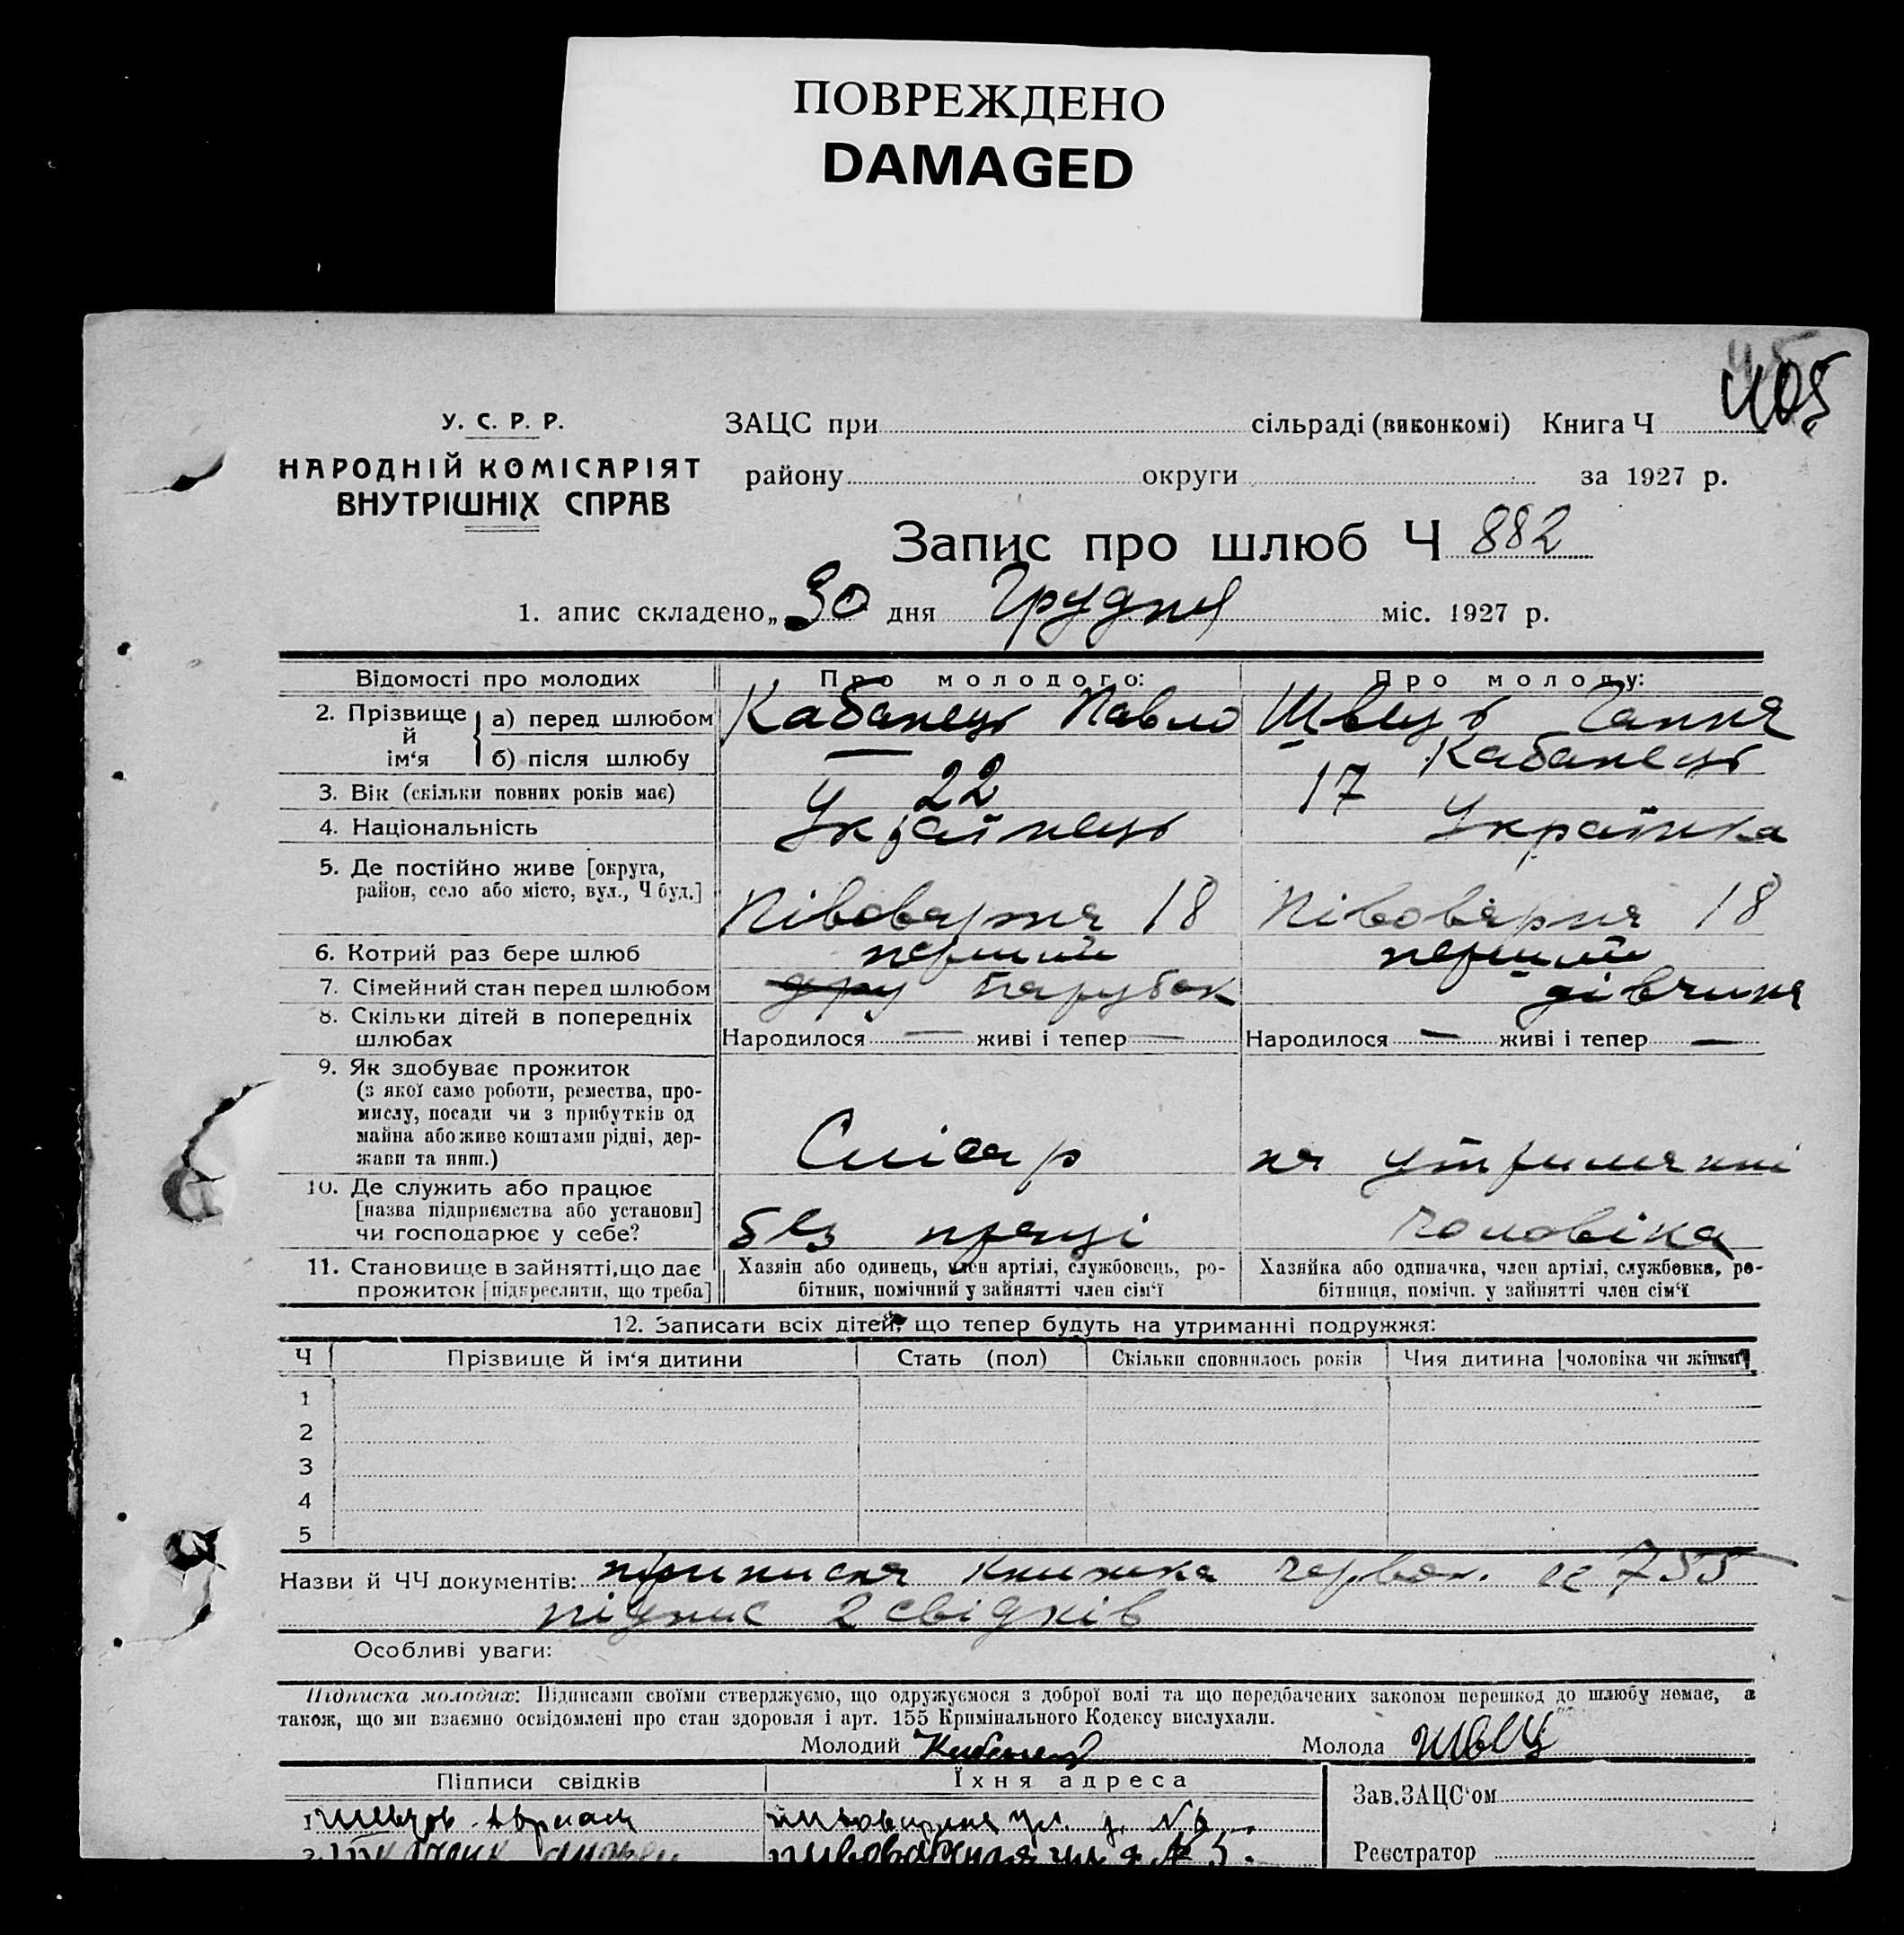 ПОВРЕЖДЕНО
DAMAGED
405
У. С. Р. Р.
НАРОДНІЙ КОМІСАРІЯТ
ВНУТРІШНІХ СПРАВ
ЗАЦС при сільраді (виконкомі) Книга Ч
району округи за 1927 р.
Запис про шлюб Ч 882
1. апис складено „ 30 дня Грудня міс. 1927 р.
Відомості про молодих Про молодого: Про молоду:
2. Прізвище й ім‘я а) перед шлюбом Кабанець Павло Швець Ганна
б) після шлюбу — Кабанець
3. Вік (скільки повних років має) 22 17
4. Національність Українець Українка
5. Де постійно живе [округа,
район, село або місто, вул., Ч буд.] Півоварня 18 Півоварня 18
6. Котрий раз бере шлюб перший перший
7. Сімейний стан перед шлюбом дру парубок дівчина
8. Скільки дітей в попередніх
шлюбах Народилося — живі і тепер — Народилося — живі і тепер —
9. Як здобуває прожиток
(з якої само роботи, ремества, про-
мислу, посади чи з прибутків од
майна або живе коштами рідні, дер-
жави та инш.) Слісар на утриманні
10. Де служить або працює
[назва підприємства або установи]
чи господарює у себе? без праці чоловіка
11. Становище в зайнятті, що дає
прожиток [підкреслити, що треба]
Хазяін або одинець, член артілі, службовець, ро-
бітник, помічний у зайнятті член сім‘ї
Хазяйка або одиначка, член артілі, службовка, ро-
бітниця, помічн. у зайнятті член сім‘ї
12. Записати всіх дітей, що тепер будуть на утриманні подружжя:
Ч Прізвище й ім‘я дитини Стать (пол) Скільки сповнилось років Чия дитина [чоловіка чи жінки]
1
2
3
4
5
Назви й ЧЧ документів: приписна книжка червон. 755
підпис 2 свідків
Особливі уваги:
Підписка молодих: Підписами своїми стверджуємо, що одружуємося з доброї волі та що передбачених законом перешкод до шлюбу немає, а
також, що ми взаємно освідомлені про стан здоровля і арт. 155 Кримінального Кодексу вислухали.
Молодий Кабанец Молода Швец
Підписи свідків Їхня адреса Зав.ЗАЦС‘ом
1
2 № 5. Реєстратор